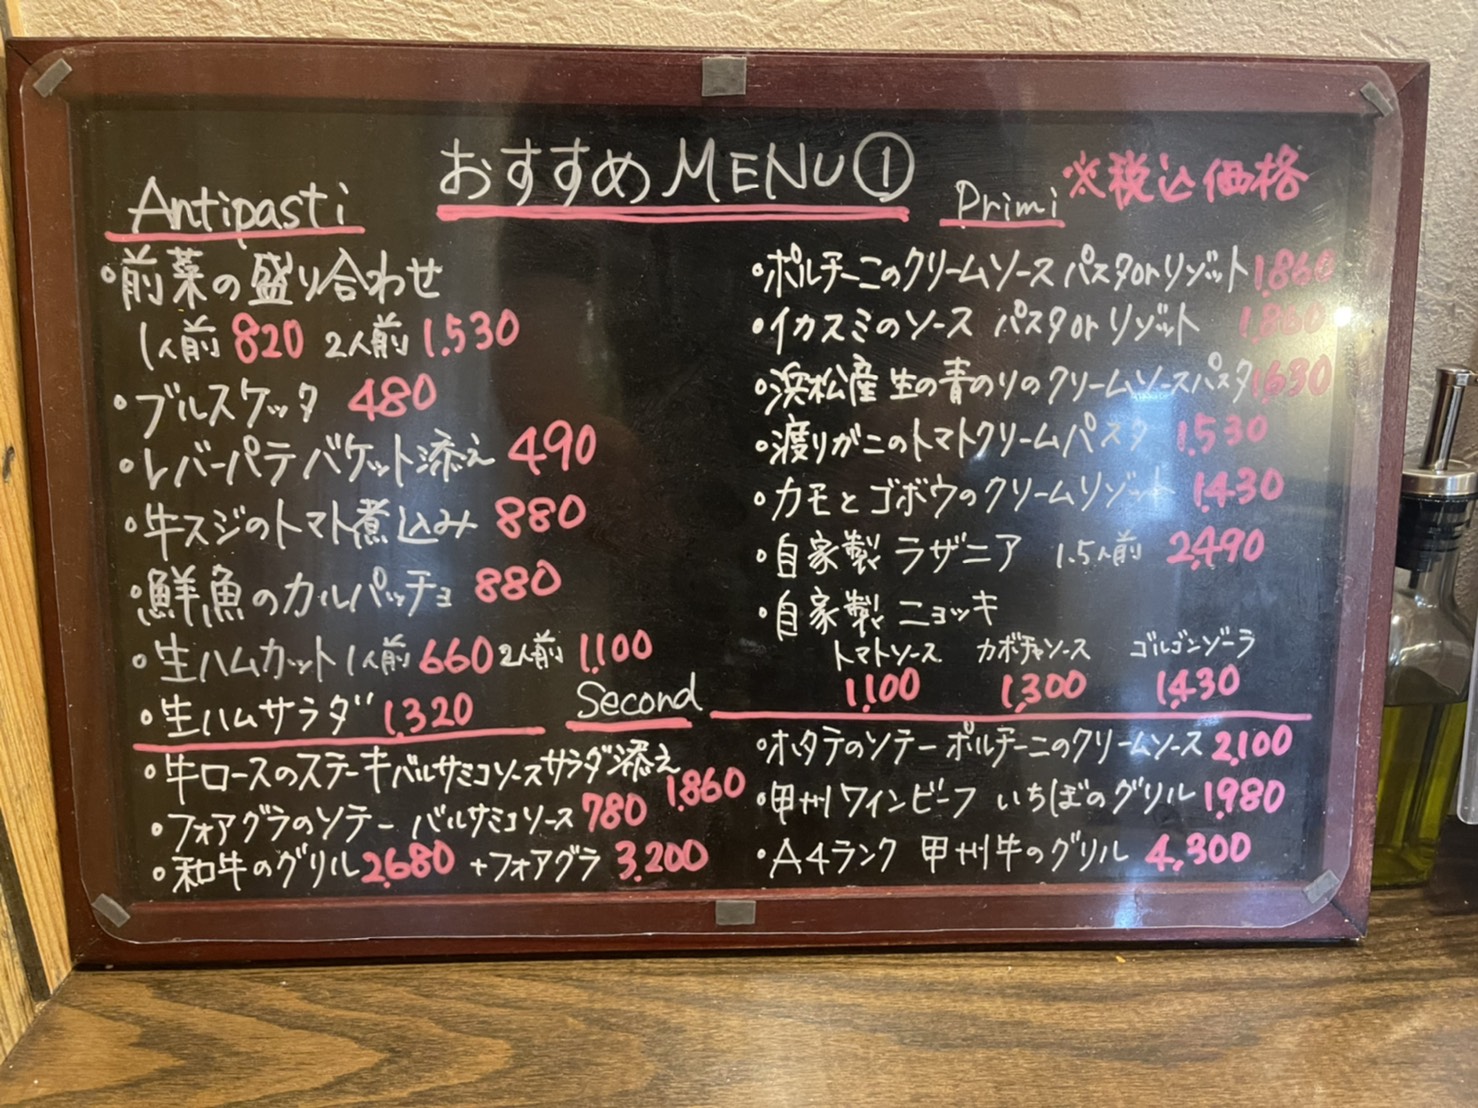 おすすめMENU①
※税込価格
Antipasti
・前菜の盛り合わせ
1人前 820 2人前 1,530
・ブルスケッタ 480
・レバーパテバケット添え 490
・牛スジのトマト煮込み 880
・鮮魚のカルパッチョ 880
・生ハムカット1人前 660 2人前 1,100
・生ハムサラダ 1,320
Primi
・ポルチーニのクリームソース パスタorリゾット 1,860
・イカスミのソース パスタorリゾット 1,860
・浜松産 生の青のりのクリームソースパスタ 1,630
・渡りガニのトマトクリームパスタ 1,530
・カモとゴボウのクリームリゾット 1,430
・自家製 ラザニア 1.5人前 2,490
・自家製 ニョッキ
トマトソース カボチャソース ゴルゴンゾーラ
1,100 1,300 1,430
Second
・牛ロースのステーキバルサミコソースサラダ添え 1,860
・フォアグラのソテー バルサミコソース 780
・和牛のグリル 2,680 +フォアグラ 3,200
・ホタテのソテー ポルチーニのクリームソース 2,100
・甲州ワインビーフ いちぼのグリル 1,980
・A4ランク 甲州牛のグリル 4,300